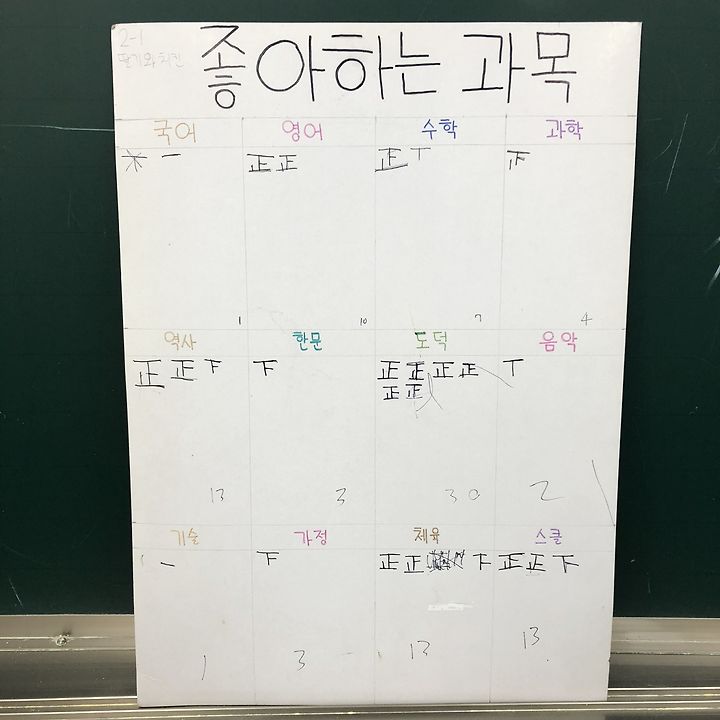 2-1
딸기와 치킨
좋아하는 과목
국어 영어 수학 과학
一 正正 正丅 正
1 10 7 4
역사 한문 도덕 음악
正正下 下 正正正正 丅
正正
13 3 30 2
기술 가정 체육 스클
一 下 正正 下 正正下
1 3 13 13